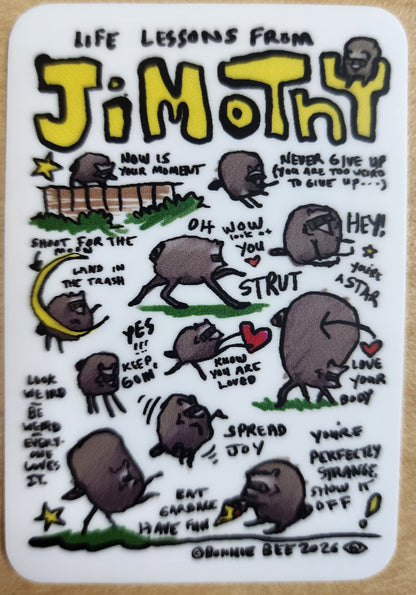 LIFE LESSONS FROM
JiMOTHY
NOW IS
YOUR MOMENT
NEVER GIVE UP
(YOU ARE TOO WEIRD
TO GIVE UP...)
OH
WOW
look at
YOU
HEY!
you're
A STAR
SHOOT FOR THE
MOON
LAND IN
THE TRASH
STRUT
YES
!!!
KEEP
GOIN'
KNOW
YOU ARE
LOVED
LOVE
YOUR
BODY
LOOK
WEIRD
BE
WEIRD
EVERY-
ONE
LOVES
IT.
SPREAD
JOY
YOU'RE
PERFECTLY
STRANGE,
SHOW IT
OFF
!
EAT
GARBAGE
HAVE FUN
©BONNIE BEE 2026